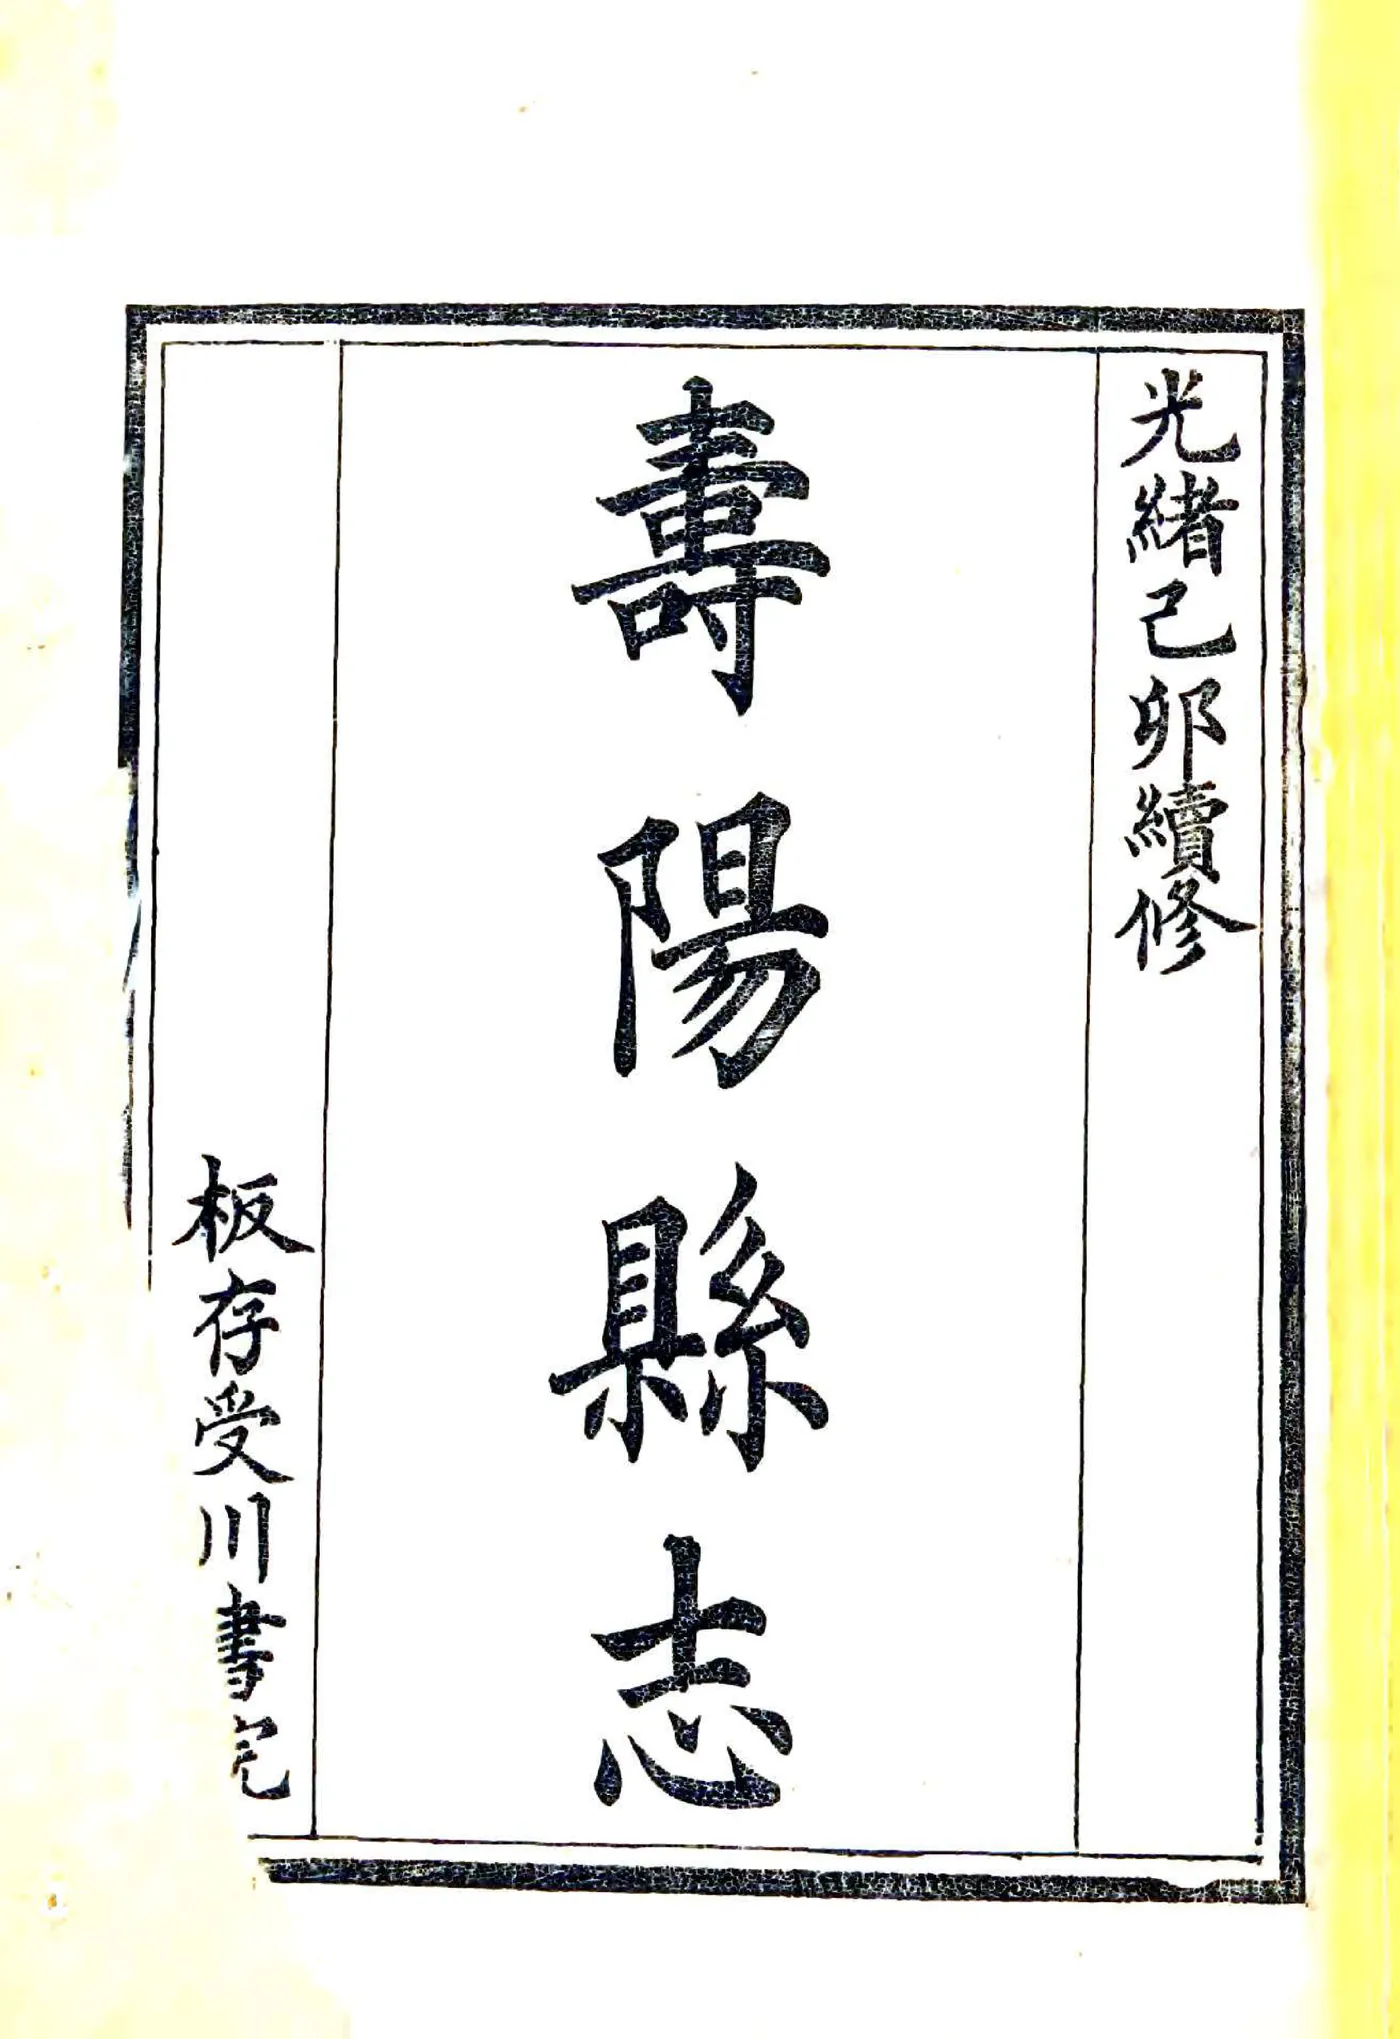 光緒己卯續修
壽陽縣志
板存受川書院